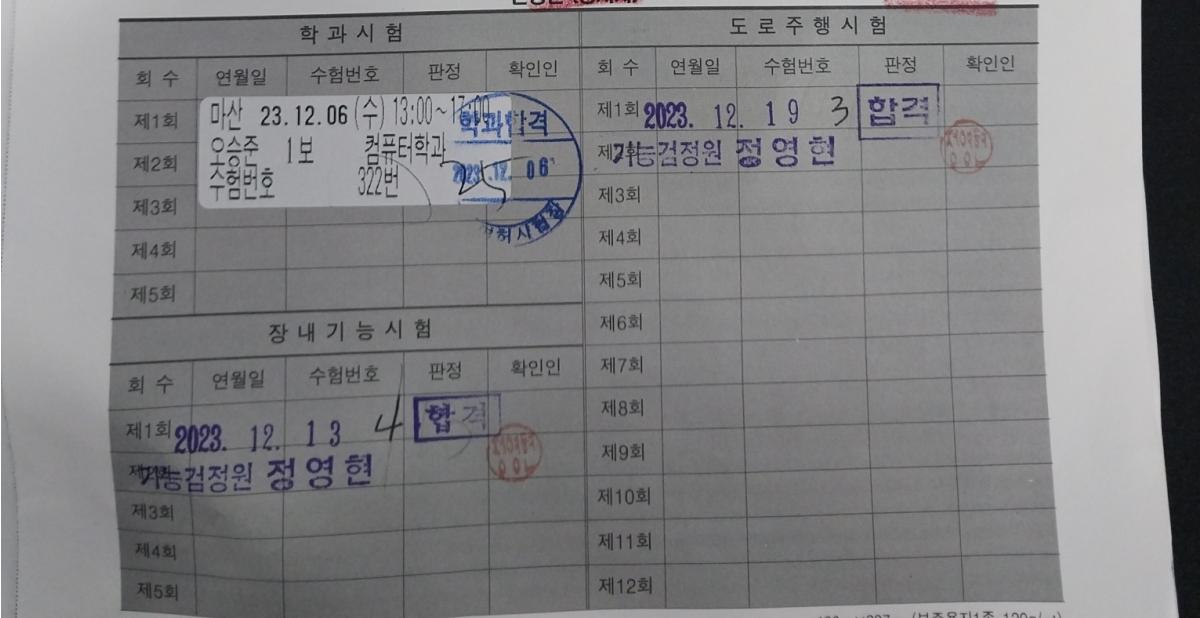 학과시험
회 수 연월일 수험번호 판정 확인인
제1회
제2회
제3회
제4회
제5회
마산 23.12.06 (수) 13:00~17:00
오승준 1보 컴퓨터학과
수험번호 322번
학과합격
2023.12.06
25
장내기능시험
회 수 연월일 수험번호 판정 확인인
제1회 2023. 12. 13 4 합격
기능검정원 정영현
제3회
제4회
제5회
도로주행시험
회 수 연월일 수험번호 판정 확인인
제1회 2023. 12. 19 3 합격
기능검정원 정영현
제3회
제4회
제5회
제6회
제7회
제8회
제9회
제10회
제11회
제12회